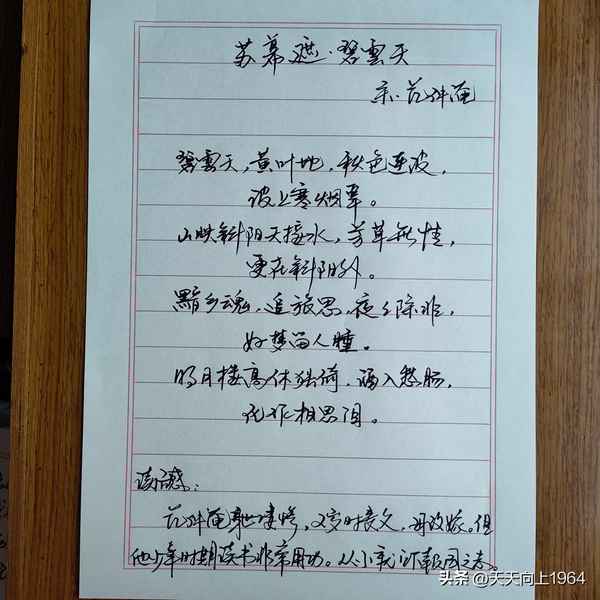 苏幕遮·碧雲天
宋·范仲淹
碧雲天,黄叶地,秋色连波,
波上寒烟翠。
山映斜阳天接水,芳草無情,
更在斜阳外。
黯乡魂,追旅思,夜々除非,
好梦留人睡。
明月楼高休独倚,酒入愁肠,
化作相思泪。
读感:
范仲淹身世凄惨,2岁时丧父,母改嫁。但
他少年时期读书非常用功。从小就立下报国之志。
头条 @天天向上1964